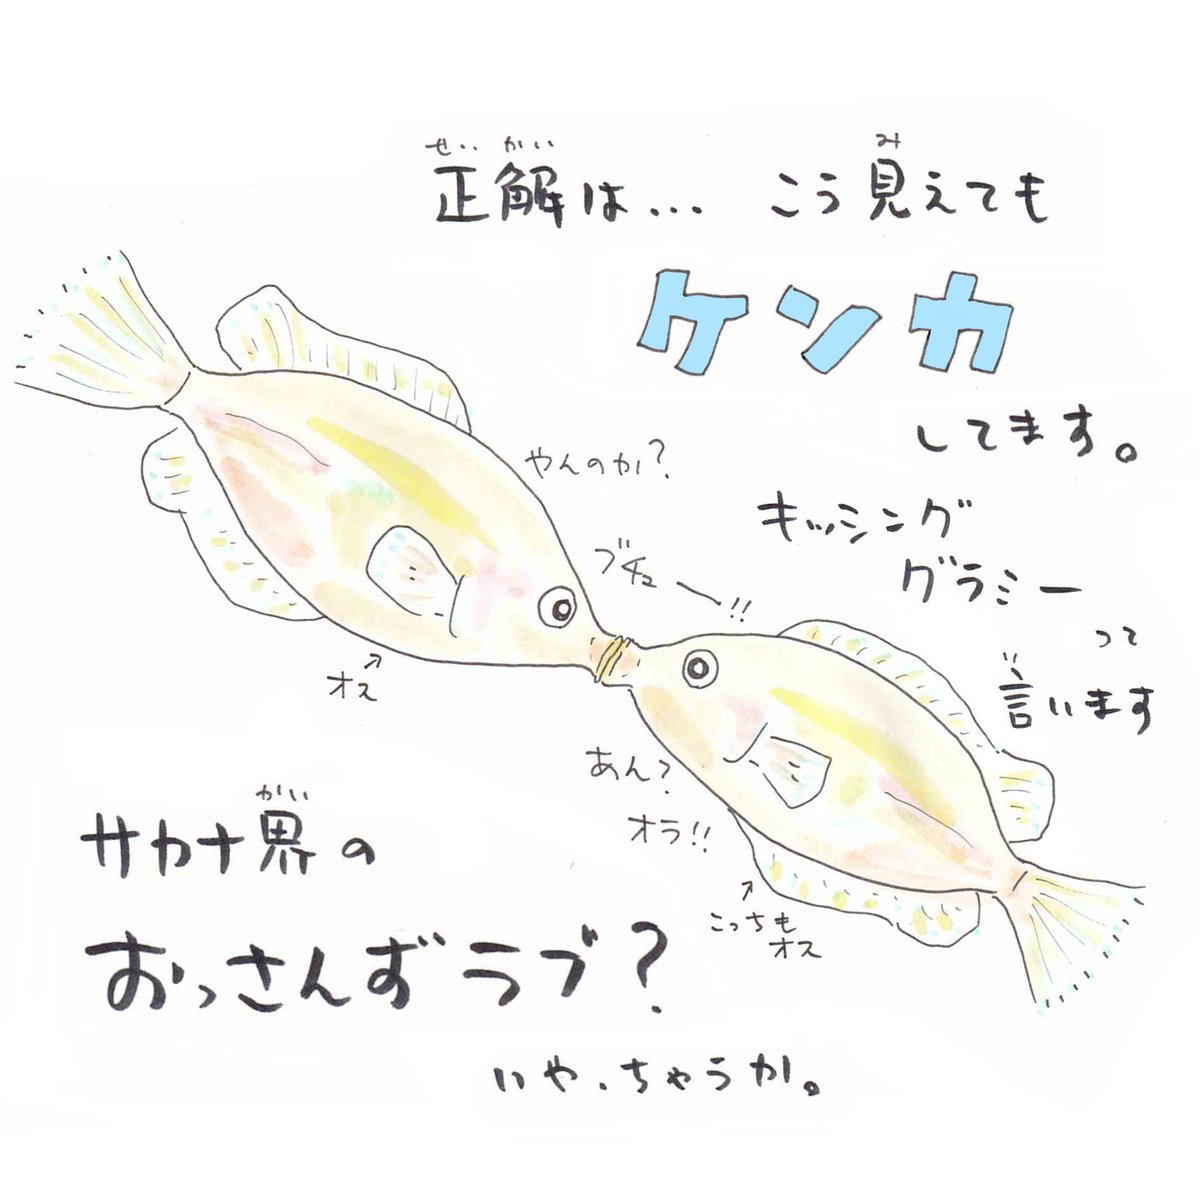 せいかい み
正解は... こう見えても
ケンカ
してます。
やんのか?
キッシング
グラミー
って
い
言います
ブチューー!!
オス
あん?
オラ!!
こっちも
オス
かい
サカナ界の
おっさんずラブ?
いや、ちゃうか。